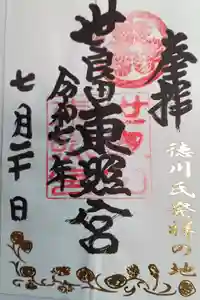 奉拝
徳川氏発祥の地
世良田東照宮
令和七年
七月二十日